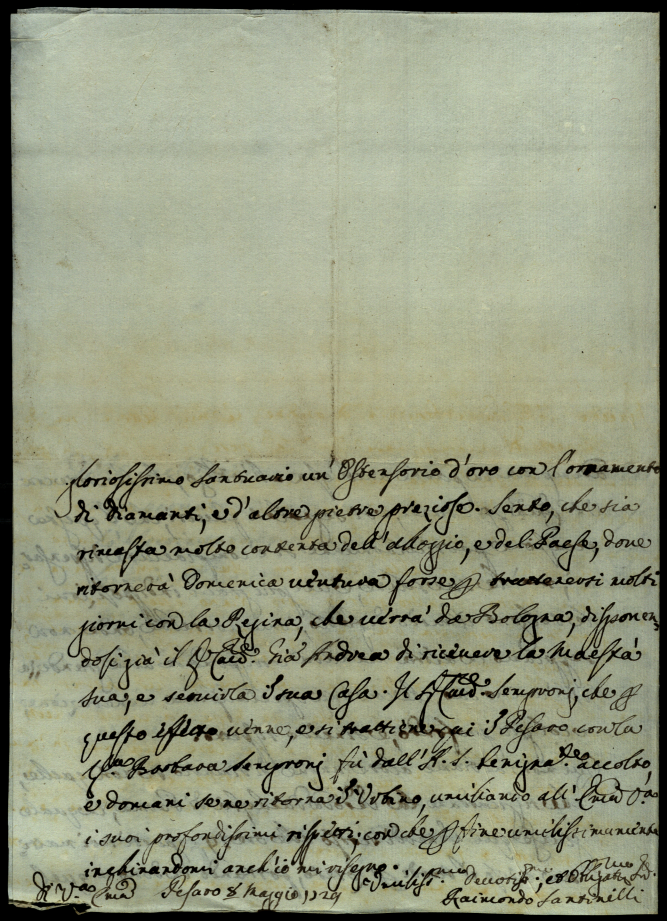 gloriosissimo Santuario un' Ostensorio d'oro con l'ornamento
di Diamanti, e d'altre pietre preziose. Sento, che sia
rimasta molto contenta dell'alloggio, e del Paese, dove
ritornerà Domenica ventura forse per trattenersi molti
giorni con la Regina, che verrà da Bologna, disponen
dosi già il Gio: Andrea di ricevere la Maestà
sua, e servirla in sua Casa. Il Sempronj, che per
questo effetto venne, e si trattiene qui in Pesaro con la
Barbara Sempronj fù dall'A. S. accolto,
e domani se ne ritorna in Urbino, umiliando all' Em:
i suoi profondissimi rispetti; con che per fine umilissimamente
inchinandomi anch'io mi rassegno.
Di V. Em: Pesaro 8 Maggio 1729
Umiliss: Devotiss:, et Obligat
Raimondo Santinelli